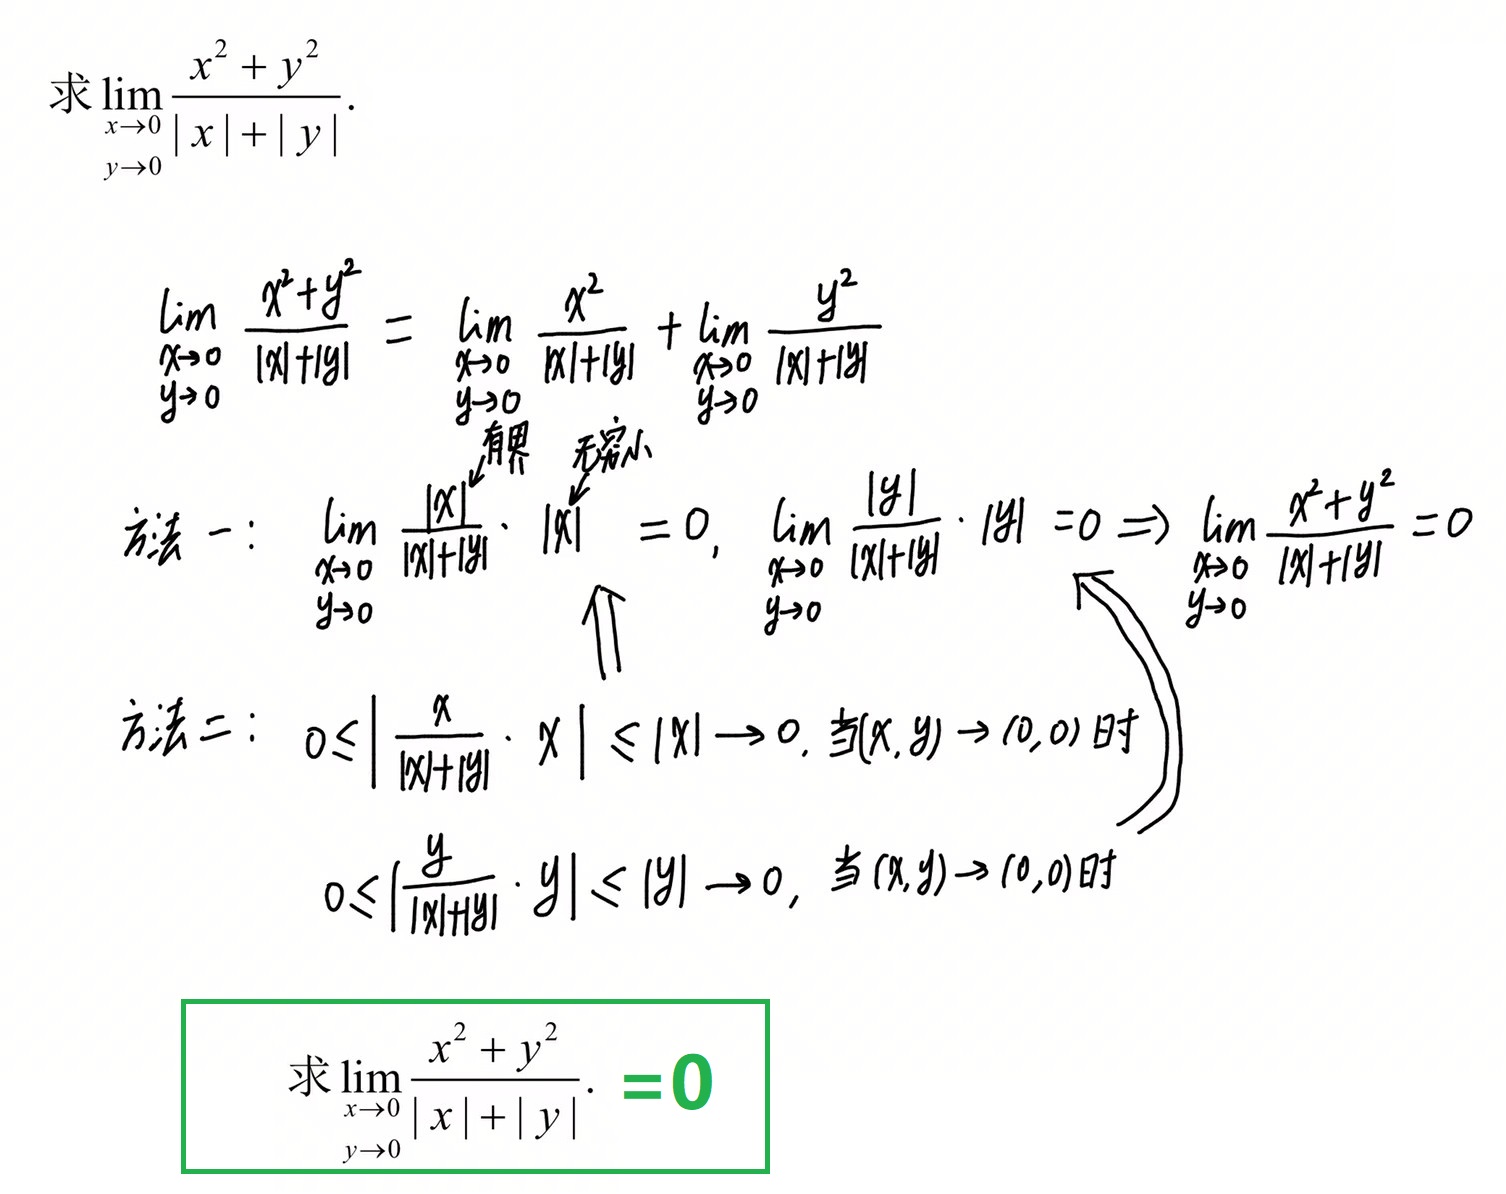 求 lim_{x→0, y→0} (x² + y²)/(|x| + |y|).
lim_{x→0, y→0} (x²+y²)/(|x|+|y|) = lim_{x→0, y→0} x²/(|x|+|y|) + lim_{x→0, y→0} y²/(|x|+|y|)
有界 无穷小
方法一: lim_{x→0, y→0} |x|/(|x|+|y|) · |x| = 0, lim_{x→0, y→0} |y|/(|x|+|y|) · |y| = 0 ⇒ lim_{x→0, y→0} (x²+y²)/(|x|+|y|) = 0
方法二: 0 ≤ | x/(|x|+|y|) · x | ≤ |x| → 0, 当(x,y) → (0,0)时
0 ≤ | y/(|x|+|y|) · y | ≤ |y| → 0, 当(x,y) → (0,0)时
求 lim_{x→0, y→0} (x² + y²)/(|x| + |y|). =0